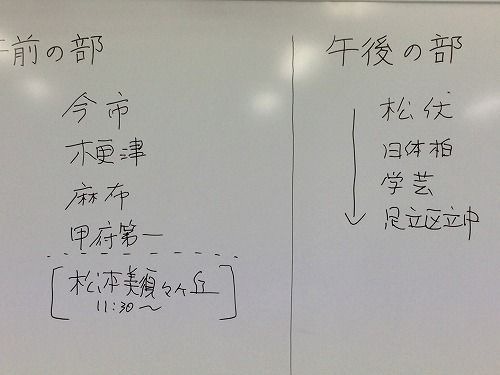 午前の部
今市
木更津
麻布
甲府第一
松本美須々ヶ丘
11:30〜
午後の部
松伏
日体柏
学芸
足立区立中